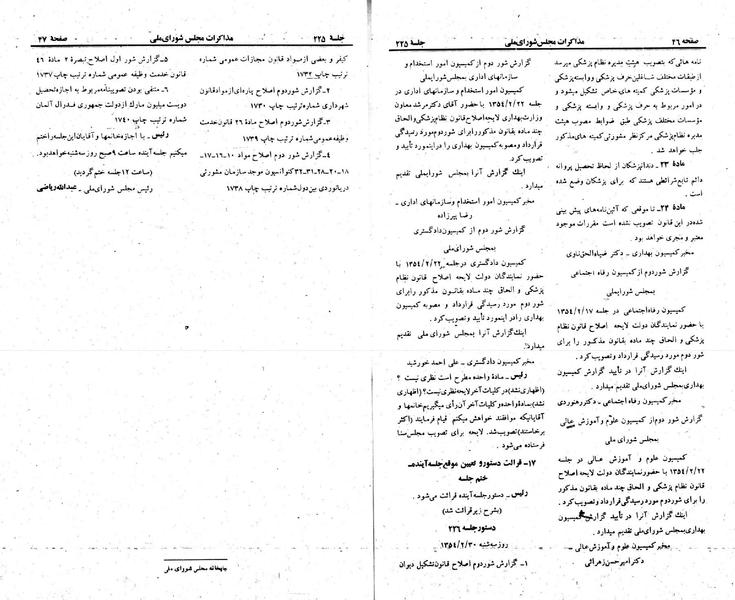 صفحه ۲۶
مذاکرات مجلس شورای ملی
جلسه ۲۲۵
نامه هائی که بتصویب هیئت مدیره نظام پزشکی میرسد
از طبقات مختلف شاغلین حرف پزشکی و وابسته پزشکی
و مؤسسات پزشکی کمیته های خاص تشکیل میشود و
در امور مربوط به حرف پزشکی و وابسته پزشکی و
مؤسسات مختلف پزشکی طبق ضوابط مصوب هیئت
مدیره نظام پزشکی مرکز نظر مشورتی کمیته های مذکور
جلب خواهد شد .
مادۀ ۲۳ـ دندانپزشکان از لحاظ تحصیل پروانه
دائم تابع شرائطی هستند که برای پزشکان وضع شده
است .
مادۀ ۲۴ـ تا موقعی که آئین‌نامه های پیش بینی
شده در این قانون تصویب نشده است مقررات موجود
معتبر و مجری خواهد بود .
مخبر کمیسیون بهداری ـ دکتر ضیاءالحق ناوی
گزارش شور دوم از کمیسیون رفاه اجتماعی
بمجلس شورایملی
کمیسیون رفاه اجتماعی در جلسه ۱۳۵۴/۲/۱۷
با حضور نمایندگان دولت لایحه اصلاح قانون نظام
پزشکی و الحاق چند ماده بقانون مذکور را برای
شور دوم مورد رسیدگی قرارداد و تصویب کرد .
اینك گزارش آنرا در تأیید گزارش کمیسیون
بهداری بمجلس شورای ملی تقدیم میدارد .
مخبر کمیسیون رفاه اجتماعی ـ دکتر رهنوردی
گزارش شور دوم از کمیسیون علوم و آموزش عالی
بمجلس شورای ملی
کمیسیون علوم و آموزش عالی در جلسه
۱۳۵۴/۲/۲۲ با حضور نمایندگان دولت لایحه اصلاح
قانون نظام پزشکی و الحاق چند ماده بقانون مذکور
را برای شور دوم مورد رسیدگی قرارداد و تصویب کرد .
اینك گزارش آنرا در تأیید گزارش کمیسیون
بهداری بمجلس شورای ملی تقدیم میدارد .
مخبر کمیسیون علوم و آموزش عالی ـ
دکتر امیرحسن زهرائی
گزارش شور دوم از کمیسیون امور استخدام و
سازمانهای اداری بمجلس شورایملی
کمیسیون امور استخدام و سازمانهای اداری در
جلسه ۱۳۵۴/۲/۲۲ با حضور آقای دکتر مرشد معاون
وزارت بهداری لایحه اصلاح قانون نظام پزشکی و الحاق
چند ماده بقانون مذکور را برای شور دوم مورد رسیدگی
قرارداد و مصوبه کمیسیون بهداری را در اینمورد تأیید و
تصویب کرد .
اینك گزارش آنرا بمجلس شورایملی تقدیم
میدارد .
مخبر کمیسیون امور استخدام و سازمانهای اداری ـ
رضا پیرزاده
گزارش شور دوم از کمیسیون دادگستری
بمجلس شورای ملی
کمیسیون دادگستری در جلسه ۱۳۵۴/۲/۲۲ با
حضور نمایندگان دولت لایحه اصلاح قانون نظام
پزشکی و الحاق چند ماده بقانون مذکور را برای
شور دوم مورد رسیدگی قرارداد و مصوبه کمیسیون
بهداری را در اینمورد تأیید و تصویب کرد .
اینك گزارش آنرا بمجلس شورای ملی تقدیم
میدارد .
مخبر کمیسیون دادگستری ـ علی احمد خورشید
رئیس ـ مادۀ واحده مطرح است نظری نیست ؟
(اظهاری نشد) در کلیات آخر لایحه نظری نیست؟ (اظهاری
نشد) بمادۀ واحده و کلیات آخر آن رأی میگیریم خانمها و
آقایانیکه موافقند خواهش میکنم قیام فرمایند (اکثر
برخاستند) تصویب شد. لایحه برای تصویب مجلس سنا
فرستاده می‌شود .
۱۷ـ قرائت دستور و تعیین موقع جلسه آینده ـ
ختم جلسه
رئیس ـ دستور جلسه آینده قرائت می‌شود .
(بشرح زیر قرائت شد)
دستور جلسه ۲۲۶
روز سه‌شنبه ۱۳۵۴/۲/۳۰
۱ـ گزارش شور دوم اصلاح قانون تشکیل دیوان
جلسۀ ۲۲۵
مذاکرات مجلس شورای ملی
صفحۀ ۲۷
کیفر و بعضی از مواد قانون مجازات عمومی شماره
ترتیب چاپ ۱۷۳۲
۲ـ گزارش شور دوم اصلاح پاره‌ای از مواد قانون
شهرداری شماره ترتیب چاپ ۱۷۳۰
۳ـ گزارش شور دوم اصلاح مادۀ ۲۶ قانون خدمت
وظیفه عمومی شماره ترتیب چاپ ۱۷۳۹
۴ـ گزارش شور دوم اصلاح مواد ۱۰ـ۱۶ـ۱۷ـ
۱۸ـ۲۰ـ۲۸ـ۳۱ـ۳۲ کنوانسیون موجد سازمان مشورتی
دریانوردی بین دول شماره ترتیب چاپ ۱۷۳۸
۵ـ گزارش شور اول اصلاح تبصرۀ ۲ مادۀ ۴۶
قانون خدمت وظیفه عمومی شماره ترتیب چاپ ۱۷۳۷
۶ـ منتفی بودن تصویبنامه مربوط به اجازه تحصیل
دویست میلیون مارك از دولت جمهوری فدرال آلمان
شماره ترتیب چاپ ۱۷۴۰
رئیس ـ با اجازه خانمها و آقایان این جلسه را ختم
میکنیم جلسه آینده ساعت ۹ صبح روز سه‌شنبه خواهد بود.
(ساعت ۱۲ جلسه ختم گردید)
رئیس مجلس شورای ملی ـ عبدالله ریاضی
چاپخانه مجلس شورای ملی